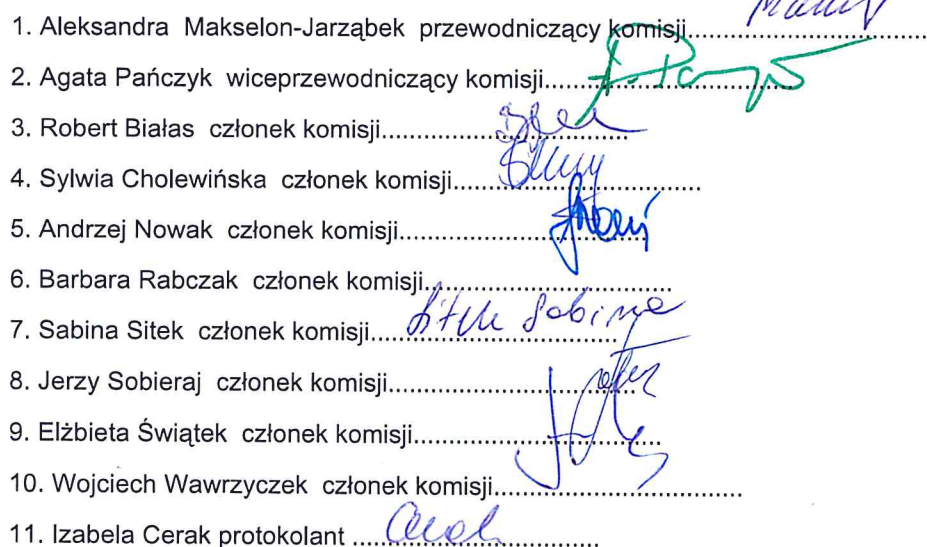 1. Aleksandra Makselon-Jarząbek przewodniczący komisji...............................................
2. Agata Pańczyk wiceprzewodniczący komisji...............................................
3. Robert Białas członek komisji...............................................
4. Sylwia Cholewińska członek komisji...............................................
5. Andrzej Nowak członek komisji...............................................
6. Barbara Rabczak członek komisji...............................................
7. Sabina Sitek członek komisji............................................... Sitek Sabina
8. Jerzy Sobieraj członek komisji...............................................
9. Elżbieta Świątek członek komisji...............................................
10. Wojciech Wawrzyczek członek komisji...............................................
11. Izabela Cerak protokolant ...............................................